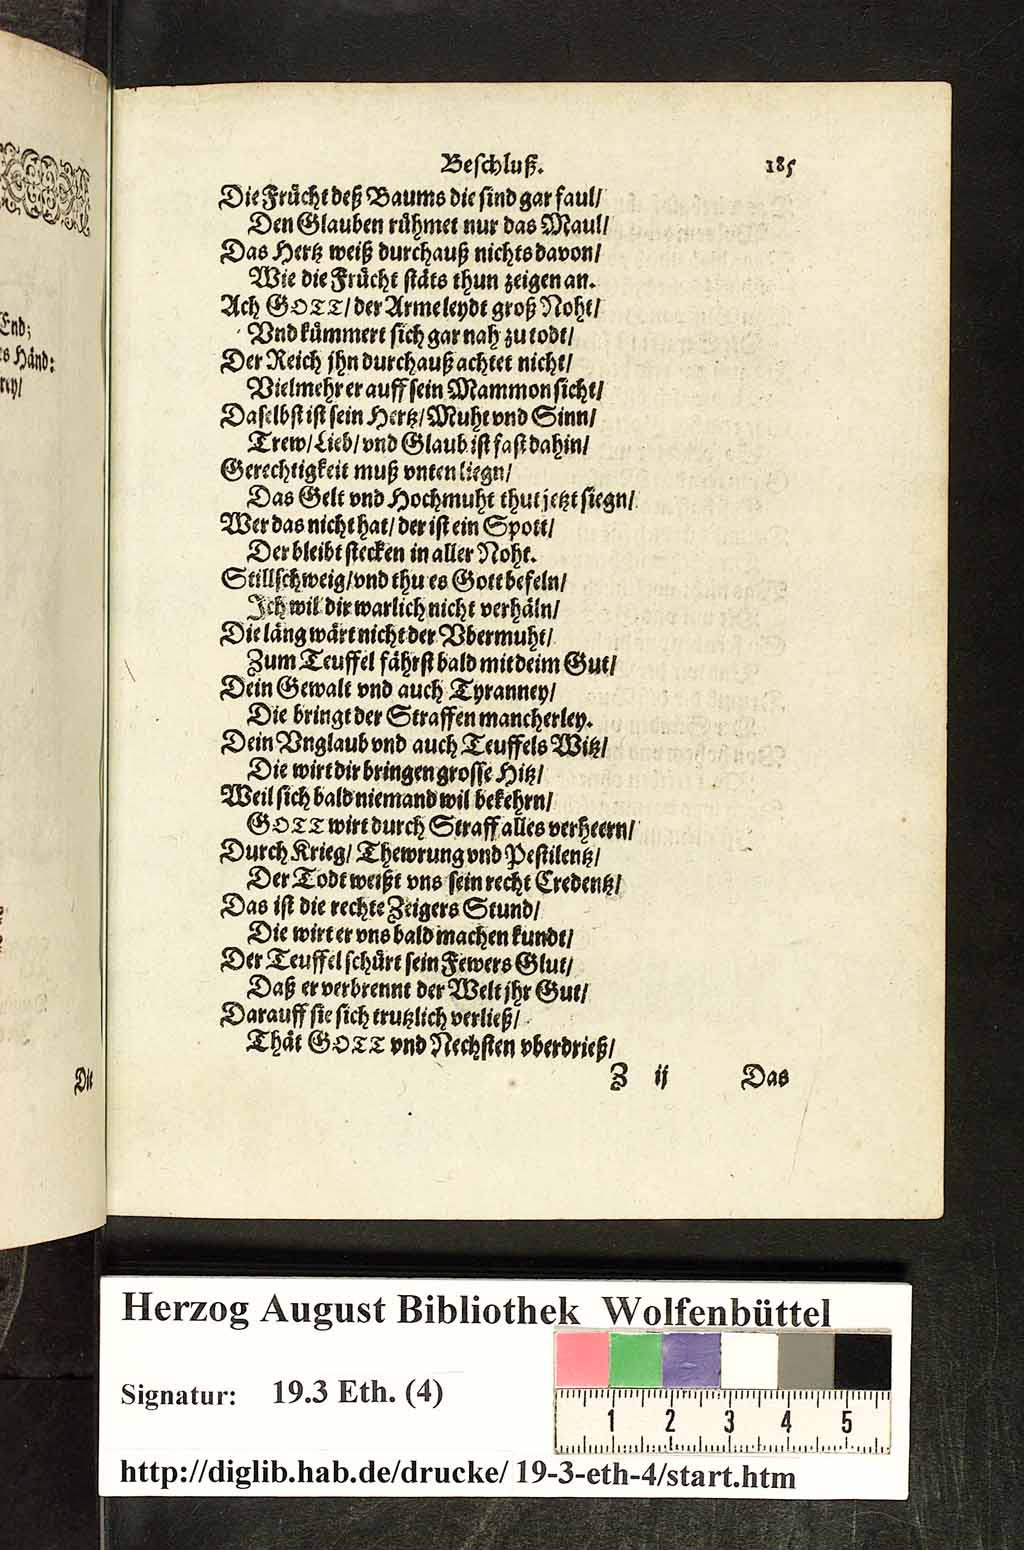 Beschluß. 185
Die Frücht deß Baums die sind gar faul/
Den Glauben rühmet nur das Maul/
Das Hertz weiß durchauß nichts davon/
Wie die Frücht stäts thun zeigen an.
Ach GOTT/ der Arme leydt groß Noht/
Vnd kümmert sich gar nah zu todt/
Der Reich jhn durchauß achtet nicht/
Vielmehr er auff sein Mammon sicht/
Daselbst ist sein Hertz/ Muht vnd Sinn/
Trew/ Lieb/ vnd Glaub ist fast dahin/
Gerechtigkeit muß vnten liegn/
Das Gelt vnd Hochmuht thut jetzt siegn/
Wer das nicht hat/ der ist ein Spott/
Der bleibt stecken in aller Noht.
Stillschweig/ vnd thu es Gott befeln/
Ich wil dir warlich nicht verhäln/
Die läng wärt nicht der Vbermuht/
Zum Teuffel fährst bald mit deim Gut/
Dein Gewalt vnd auch Tyranney/
Die bringt der Straffen mancherley.
Dein Vnglaub vnd auch Teuffels Witz/
Die wirt dir bringen grosse Hitz/
Weil sich bald niemand wil bekehrn/
GOTT wirt durch Straff alles verheern/
Durch Krieg/ Thewrung vnd Pestilentz/
Der Todt weißt vns sein recht Credentz/
Das ist die rechte Zeigers Stund/
Die wirt er vns bald machen kundt/
Der Teuffel schürt sein Fewers Glut/
Daß er verbrennt der Welt jhr Gut/
Darauff sie sich trutzlich verließ/
Thät GOTT vnd Nechsten vberdrieß/
Z ij Das
End;
Händ:
Die
Herzog August Bibliothek Wolfenbüttel
Signatur: 19.3 Eth. (4)
1 2 3 4 5
http://diglib.hab.de/drucke/19-3-eth-4/start.htm